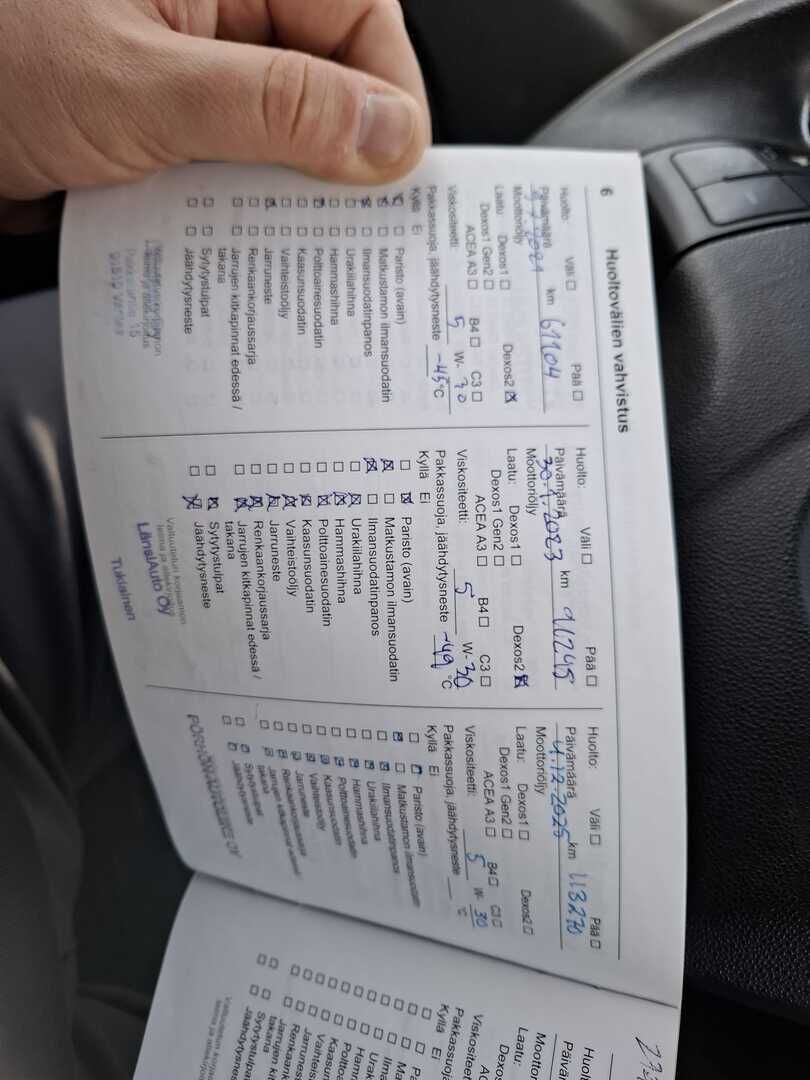 6
Huoltovälien vahvistus
Huolto: Väli ☐ Pää ☐
Päivämäärä km 61104
Moottoriöljy
Laatu: Dexos1 ☐ Dexos2 ☒
Dexos1 Gen2 ☐
ACEA A3 ☐ B4 ☐ C3 ☐
Viskositeetti: 5 W- 30
Pakkassuoja, jäähdytysneste -45 °C
Kyllä Ei
Paristo (avain)
Matkustamon ilmansuodatin
Ilmansuodatinpanos
Urakiilahihna
Hammashihna
Polttoainesuodatin
Kaasunsuodatin
Vaihteistoöljy
Jarruneste
Renkaankorjaussarja
Jarrujen kitkapinnat edessä /
takana
Sytytystulpat
Jäähdytysneste
Huolto: Väli ☐ Pää ☐
Päivämäärä km 91245
Moottoriöljy
Laatu: Dexos1 ☐ Dexos2 ☒
Dexos1 Gen2 ☐
ACEA A3 ☐ B4 ☐ C3 ☐
Viskositeetti: 5 W- 30
Pakkassuoja, jäähdytysneste -49 °C
Kyllä Ei
Paristo (avain)
Matkustamon ilmansuodatin
Ilmansuodatinpanos
Urakiilahihna
Hammashihna
Polttoainesuodatin
Kaasunsuodatin
Vaihteistoöljy
Jarruneste
Renkaankorjaussarja
Jarrujen kitkapinnat edessä /
takana
Sytytystulpat
Jäähdytysneste
Valtuutetun korjaamon
leima ja allekirjoitus
LänsiAuto Oy
Tukiainen
Huolto: Väli ☐ Pää ☐
Päivämäärä 4.12.2025 km 113270
Moottoriöljy
Laatu: Dexos1 ☐ Dexos2 ☐
Dexos1 Gen2 ☐
ACEA A3 ☐ B4 ☐ C3 ☐
Viskositeetti: 5 W- 30
Pakkassuoja, jäähdytysneste °C
Kyllä Ei
Paristo (avain)
Matkustamon ilmansuodatin
Ilmansuodatinpanos
Urakiilahihna
Hammashihna
Polttoainesuodatin
Kaasunsuodatin
Vaihteistoöljy
Jarruneste
Renkaankorjaussarja
Jarrujen kitkapinnat edessä /
takana
Sytytystulpat
Jäähdytysneste
PÖRHÖN AUTOLIIKE OY